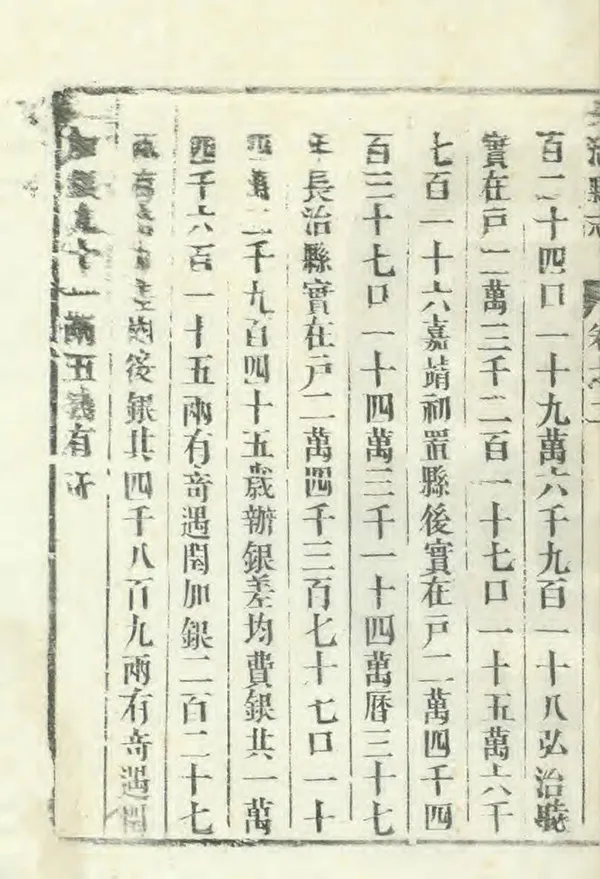 長治縣志 卷
百二十四口一十九萬六千九百一十八弘治
實在戸二萬三千二百一十七口一十五萬六千
七百一十六嘉靖初置縣後實在戸二萬四千四
百三十七口一十四萬三千一十四萬曆三十七
年長治縣實在戸二萬四千三百七十七口一十
四萬二千九百四十五歲辦銀差均費銀共一萬
四千六百一十五兩有奇遇閏加銀二百二十七
後銀共四千八百九兩有奇遇閏
十一兩五錢有奇